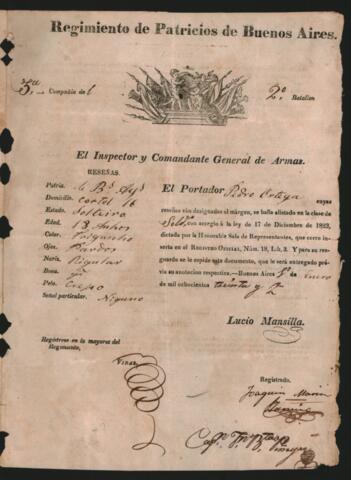 Regimiento de Patricios de Buenos Aires.
3.a Compañia del 2.o Batallon
El Inspector y Comandante General de Armas.
RESEÑAS.
Patria. de Bs Ays
Domicilio. cortel 16
Estado. Solteiro
Edad. 18 Anhos
Color. Trigueño
Ojos. Pardos
Nariz. Rigular
Boca.
Pelo. Crespo
Señal particular. Niguno
El Portador Pedro Ortega cuyas
reseñas van designadas al márgen, se halla alistado en la clase de
Soldo con arreglo á la ley de 17 de Diciembre de 1823,
dictada por la Honorable Sala de Representantes, que corre inserta
en el Registro Oficial, Núm. 18, Lib. 3. Y para su resguardo
se le expide este documento, que le será entregado prévia
su anotacion respectiva.—Buenos Aires 5 de Enero
de mil ochocientos treinta y 2
Lucio Mansilla.
Regístrese en la mayoría del
Regimiento,
Registrado.
Joaquin Maria